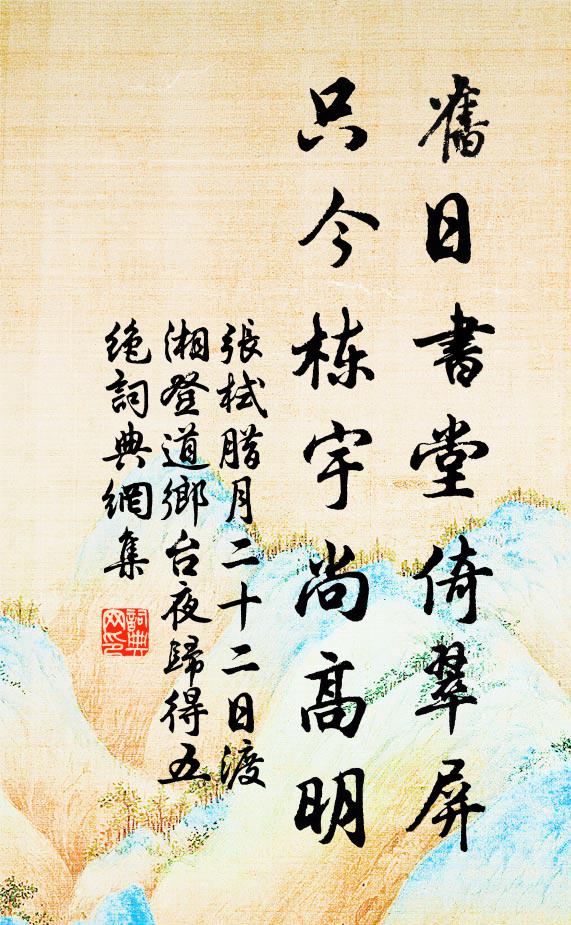 舊日書堂倚翠屏
只今栋宇尚高明
張栻腊月二十二日渡
湘登道鄉台夜歸得五
绝詞典網集
詞典
网印